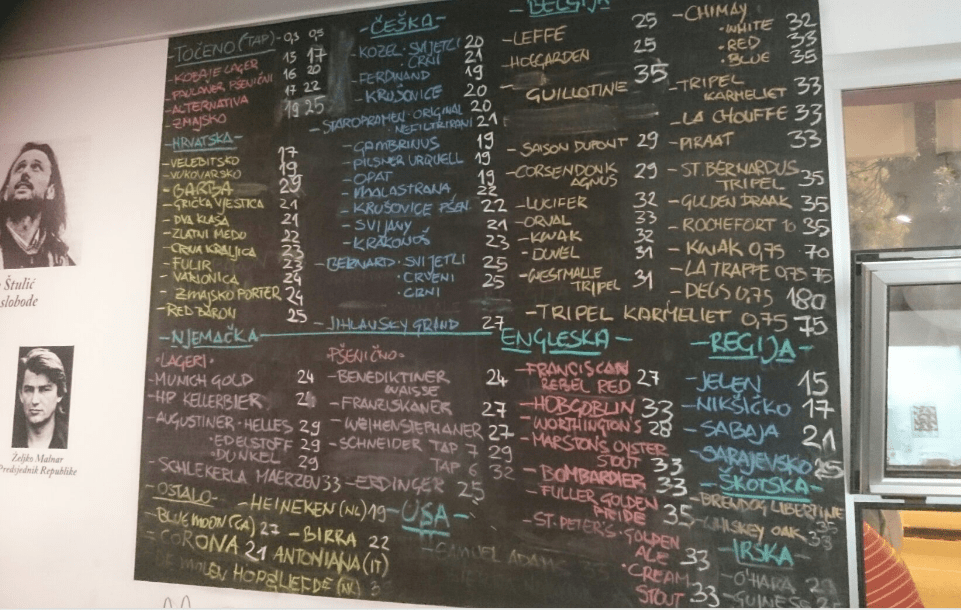 TOČENO (TAP) - 0,3 0,5
- KOBAJE LAGER 15 17
- PAULANER PŠENIČNI 16 20
- ALTERNATIVA 17 22
- ZMAJSKO 19 25
- HRVATSKA -
- VELEBITSKO 17
- VUKOVARSKO 19
- GARBA 29
- GRIČKA VJEŠTICA 21
- DVA KLASA 21
- ZLATNI MEDO 22
- CRNA KRALJICA 23
- FULIR 23
- VARIONICA 24
- ZMAJSKO PORTER 24
- RED BARON 25
- ČEŠKA -
- KOZEL · SVIJETLI 20
· CRNI 21
- FERDINAND 19
- KRUŠOVICE 20
- STAROPRAMEN · ORIGINAL 20
· NEFILTRIRANI 21
- GAMBRINUS 19
- PILSNER URQUELL 19
- OPAT 19
- MALASTRANA 22
- KRUŠOVICE PŠEN. 22
- SVIJANY 21
- KRAKONOŠ 23
- BERNARD · SVIJETLI 25
· CRVENI 25
· CRNI 25
- JIHLAVSKY GRAND 27
- BELGIJA
- LEFFE 25
- HOEGARDEN 25
GUILLOTINE 35
- SAISON DUPONT 29
- CORSENDONK AGNUS 29
- LUCIFER 32
- ORVAL 33
- KWAK 32
- DUVEL 31
- WESTMALLE TRIPEL 31
- CHIMAY
· WHITE 32
· RED 33
· BLUE 35
- TRIPEL KARMELIET 33
- LA CHOUFFE 33
- PIRAAT 33
- ST. BERNARDUS TRIPEL 35
- GULDEN DRAAK 35
- ROCHEFORT 10 35
- KWAK 0,75 70
- LA TRAPPE 0,75 75
- DEUS 0,75 180
- TRIPEL KARMELIET 0,75 75
- NJEMAČKA -
· LAGERI ·
- MUNICH GOLD 24
- HP KELLERBIER
- AUGUSTINER · HELLES 29
· EDELSTOFF 29
· DUNKEL 29
- SCHLEKERLA MAERZEN 33
· PŠENIČNO ·
- BENEDIKTINER WAISSE 24
- FRANZISKANER 27
- WEIHENSTEPHANER 27
- SCHNEIDER TAP 7 29
TAP 6 32
- ERDINGER 25
ENGLESKA -
- FRANCISCAN REBEL RED 27
- HOBGOBLIN 33
- WORTHINGTON'S 28
- MARSTONS OYSTER STOUT 33
- BOMBARDIER 33
- FULLER GOLDEN PRIDE 35
- ST. PETER'S · GOLDEN ALE 33
· CREAM STOUT 33
- REGIJA -
- JELEN 15
- NIKŠIĆKO 17
- SABAJA 21
- SARAJEVSKO 25
- ŠKOTSKA -
- BREWDOG LIBERTINE 35
- WHISKEY OAK 33
- IRSKA -
- O'HARA
- GUINESS
- OSTALO -
- HEINEKEN (NL) 19
- BLUE MOON (CA) 27
- BIRRA ANTONIANA (IT) 22
- CORONA 21
DE MOLEN HOP & LIEFDE (NL)
- USA -
- SAMUEL ADAMS 33
o Štulić
slobode
Željko Malnar
Predsjednik Republike